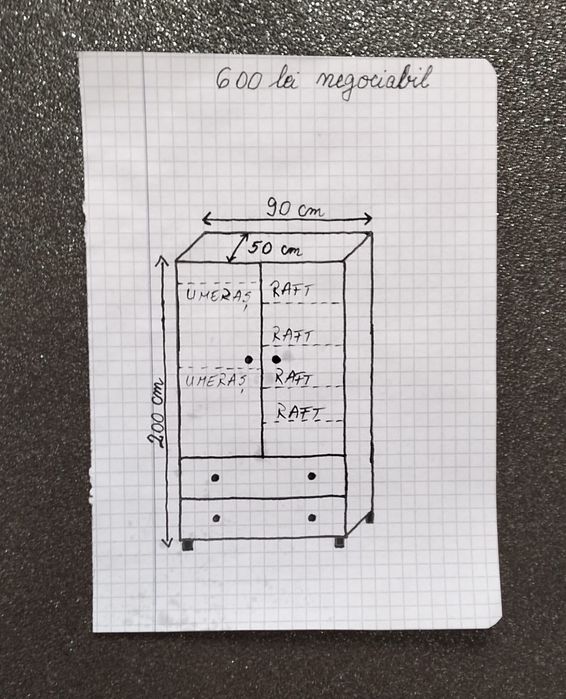 600 lei negociabil
90 cm
50 cm
UMERAȘ
RAFT
RAFT
UMERAȘ
RAFT
RAFT
200 cm